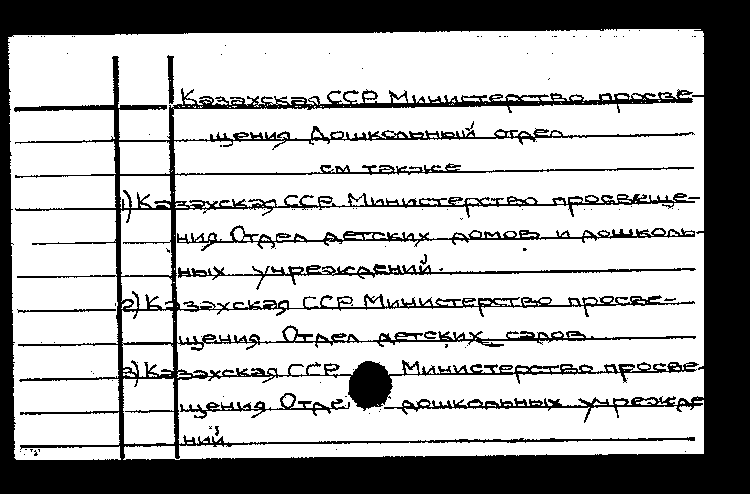 Казахская ССР. Министерство просве-
щения Дошкольный отдел.
см также
1) Казахская ССР. Министерство просвеще-
ния Отдел детских домов и дошколь-
ных учреждений.
2) Казахская ССР. Министерство просве-
щения. Отдел детских садов.
3) Казахская ССР. Министерство просве-
щения Отдел дошкольных учрежде
ний.